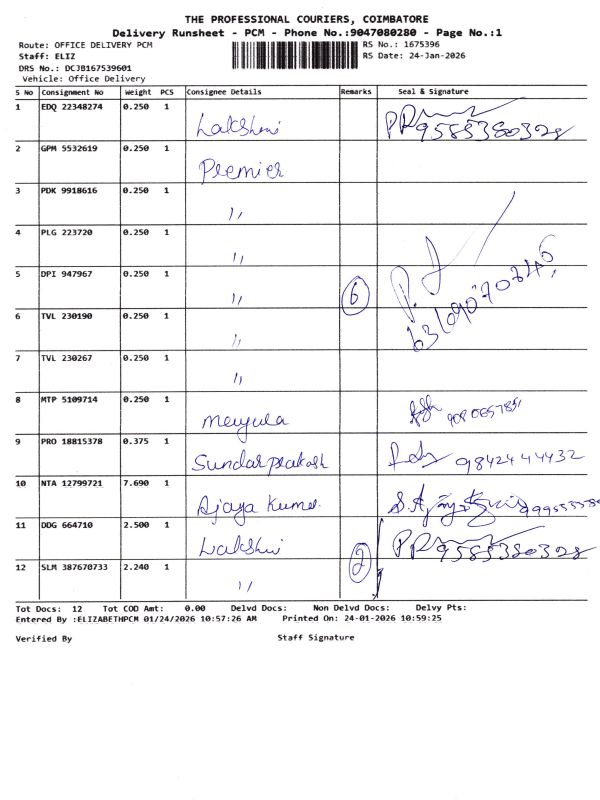 THE PROFESSIONAL COURIERS, COIMBATORE
Delivery Runsheet - PCM - Phone No.:9047080280 - Page No.:1
Route: OFFICE DELIVERY PCM
RS No.: 1675396
Staff: ELIZ
RS Date: 24-Jan-2026
DRS No.: DCJB167539601
Vehicle: Office Delivery
S No Consignment No Weight PCS Consignee Details Remarks Seal & Signature
1 EDQ 22348274 0.250 1 Lakshmi 9585380328
2 GPM 5532619 0.250 1 Premier
3 PDK 9918616 0.250 1 ,,
4 PLG 223720 0.250 1 ,,
5 DPI 947967 0.250 1 ,, 6
6 TVL 230190 0.250 1 ,,
7 TVL 230267 0.250 1 ,,
8 MTP 5109714 0.250 1
9 PRO 18815378 0.375 1 Sundarprakash 9842444432
10 NTA 12799721 7.690 1 Ajaya Kumar
11 DDG 664710 2.500 1 Lakshmi 9585380328
12 SLM 387670733 2.240 1 ,, 2
Tot Docs: 12 Tot COD Amt: 0.00 Delvd Docs: Non Delvd Docs: Delvy Pts:
Entered By :ELIZABETHPCM 01/24/2026 10:57:26 AM Printed On: 24-01-2026 10:59:25
Verified By Staff Signature